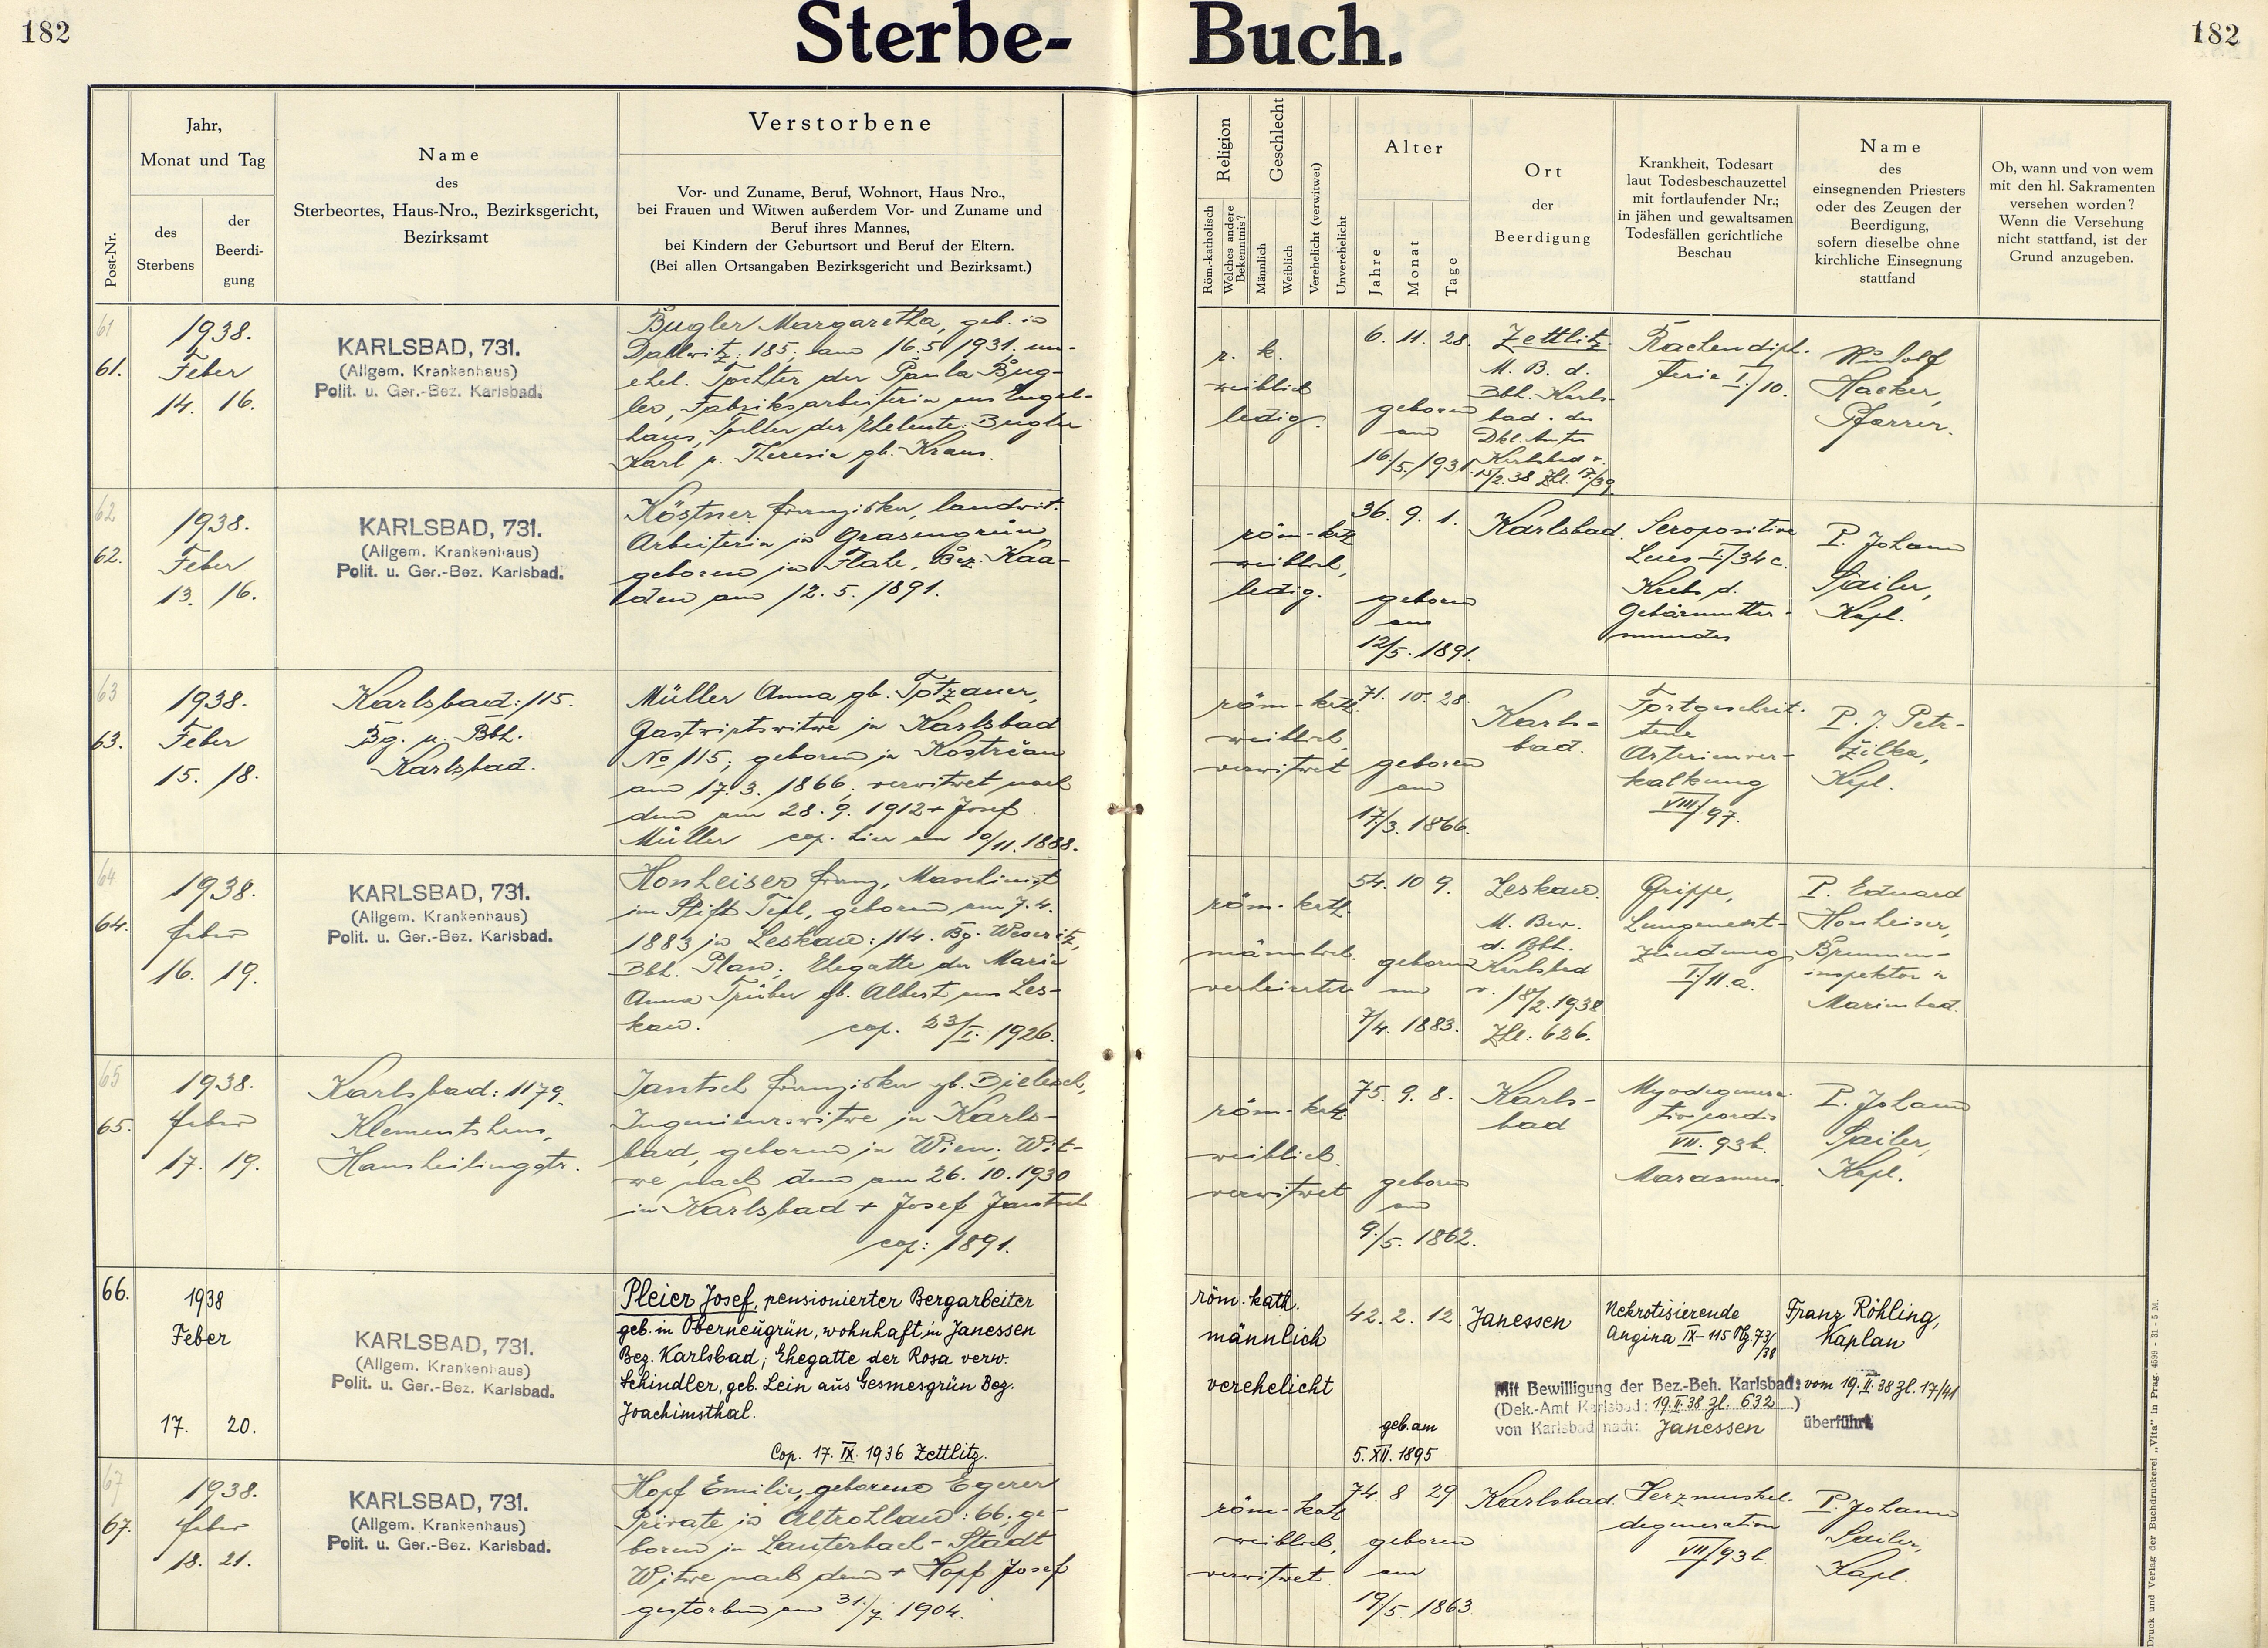 182
Sterbe-
Buch.
182
Post-Nr.
Jahr,
Monat und Tag
des
Sterbens
der
Beerdi-
gung
Name
des
Sterbeortes, Haus-Nro., Bezirksgericht,
Bezirksamt
Verstorbene
Vor- und Zuname, Beruf, Wohnort, Haus Nro.,
bei Frauen und Witwen außerdem Vor- und Zuname und
Beruf ihres Mannes,
bei Kindern der Geburtsort und Beruf der Eltern.
(Bei allen Ortsangaben Bezirksgericht und Bezirksamt.)
Religion
Röm.-katholisch
Welches andere
Bekenntnis?
Geschlecht
Männlich
Weiblich
Verehelicht (verwitwet)
Unverehelicht
Alter
Jahre
Monat
Tage
Ort
der
Beerdigung
Krankheit, Todesart
laut Todesbeschauzettel
mit fortlaufender Nr.;
in jähen und gewaltsamen
Todesfällen gerichtliche
Beschau
Name
des
einsegnenden Priesters
oder des Zeugen der
Beerdigung,
sofern dieselbe ohne
kirchliche Einsegnung
stattfand
Ob, wann und von wem
mit den hl. Sakramenten
versehen worden?
Wenn die Versehung
nicht stattfand, ist der
Grund anzugeben.
61
61.
1938.
Feber
14. 16.
KARLSBAD, 731.
(Allgem. Krankenhaus)
Polit. u. Ger.-Bez. Karlsbad.
Bugler Margaretha, geb. in
Dallwitz: 185, am 16.5.1931. un-
ehel. Tochter der Paula Bug-
ler, Fabriksarbeiterin aus Engel-
haus, Tochter der Eheleute: Bugler
Karl u. Theresia gb. Kraus.
r. k.
weiblich
ledig.
6. 11. 28.
geboren
am
16./5. 1931.
Zettlitz.
M. B. d.
Bbh. Karls-
bad u. des
Dkl. Amtes
Karlsbad v.
15/2. 38 Zhl. 17/39
Rachendiph-
terie I./10.
Rudolf
Hacker,
Pfarrer.
62
62.
1938.
Feber
13. 16.
KARLSBAD, 731.
(Allgem. Krankenhaus)
Polit. u. Ger.-Bez. Karlsbad.
Köstner Franziska, landwirt.
Arbeiterin in Grasengrün
geboren in Flahe, Bez. Kaa-
den am 12.5.1891.
röm-kth
weiblich,
ledig.
36. 9. 1.
geboren
am
12/5. 1891.
Karlsbad.
Seropositive
Lues I/34c.
Krebs d.
Gebärmutter-
mundes
P. Johann
Sailer,
Kapl.
63
63.
1938.
Feber
15. 18.
Karlsbad: 115.
Bg. u. Bbh.
Karlsbad.
Müller Anna gb. Totzauer,
Gastwirtswitwe in Karlsbad
No 115; geboren in Kostrčan
am 17.3.1866, verwitwet nach
dem am 28.9.1912 + Josef
Müller cop. hier am 10/11. 1888.
röm-kth.
weiblich,
verwitwet
71. 10. 28.
geboren
am
17/3. 1866.
Karls-
bad.
Fortgeschrit-
tene
Arterienver-
kalkung
VIII/97.
P. J. Petr-
žilka,
Kapl.
64
64.
1938.
Feber
16. 19.
KARLSBAD, 731.
(Allgem. Krankenhaus)
Polit. u. Ger.-Bez. Karlsbad.
Honheiser Franz, Maschinist
im Stift Tepl, geboren am 7.4.
1883 in Leskau: 114. Bg. Weseritz,
Bbh. Plan; Ehegatte der Maria
Anna Träber gb. Albert aus Les-
kau. cop. 23/I. 1926.
röm-kath.
männlich.
verheiratet
54. 10 9.
geboren
am
7/4. 1883.
Leskau.
M. Bew.
d. Bbh.
Karlsbad
v. 18/2. 1938
Zhl: 626.
Grippe,
Lungenent-
zündung
I./11.a.
P. Eduard
Honheiser,
Brunnen-
inspektor in
Marienbad.
65
65.
1938.
Feber
17. 19.
Karlsbad: 1179.
Klementshaus,
Hansheilingstr.
Jantsch Franziska gb.
Ingenieurswitwe in Karls-
bad, geboren in Wien; Wit-
we nach dem am 26.10.1930
in Karlsbad + Josef Jantsch
cop: 1891.
röm-kth
weiblich.
verwitwet
75. 9. 8.
geboren
am
9./5. 1862.
Karls-
bad
Myodegenera-
tio cordis
VII. 93b.
Marasmus.
P. Johann
Sailer,
Kapl.
66.
1938
Feber
17. 20.
KARLSBAD, 731.
(Allgem. Krankenhaus)
Polit. u. Ger.-Bez. Karlsbad.
Pleier Josef, pensionierter Bergarbeiter
geb. in Oberneugrün, wohnhaft in Janessen
Bez. Karlsbad; Ehegatte der Rosa verw.
Schindler, geb. Lein aus Gesmesgrün Bez.
Joachimsthal.
Cop. 17. IX. 1936 Zettlitz.
röm. kath.
männlich
verehelicht
42. 2. 12.
geb. am
5. XII. 1895
Janessen
Nekrotisierende
Angina IX-115 Plg. 73/38
Franz Röhling,
Kaplan
Mit Bewilligung der Bez.-Beh. Karlsbad: vom 19. II. 38 Zl. 17/41
(Dek.-Amt Karlsbad: 19. II. 38 Zl. 632)
von Karlsbad nach: Janessen überführt
67
67.
1938.
Feber
18. 21.
KARLSBAD, 731.
(Allgem. Krankenhaus)
Polit. u. Ger.-Bez. Karlsbad.
Hopf Emilie, geborene Egerer
Private in Altrohlau: 66, ge-
boren in Lauterbach-Stadt
Witwe nach dem + Hopf Josef
gestorben am 31./7. 1904.
röm-kath
weiblich,
verwitwet
74. 8 29
geboren
am
19/5. 1863.
Karlsbad.
Herzmuskel-
degeneration
VII/93b.
P. Johann
Sailer,
Kapl.
Druck und Verlag der Buchdruckerei „Vita" in Prag. 4599 - 31 - 5 M.